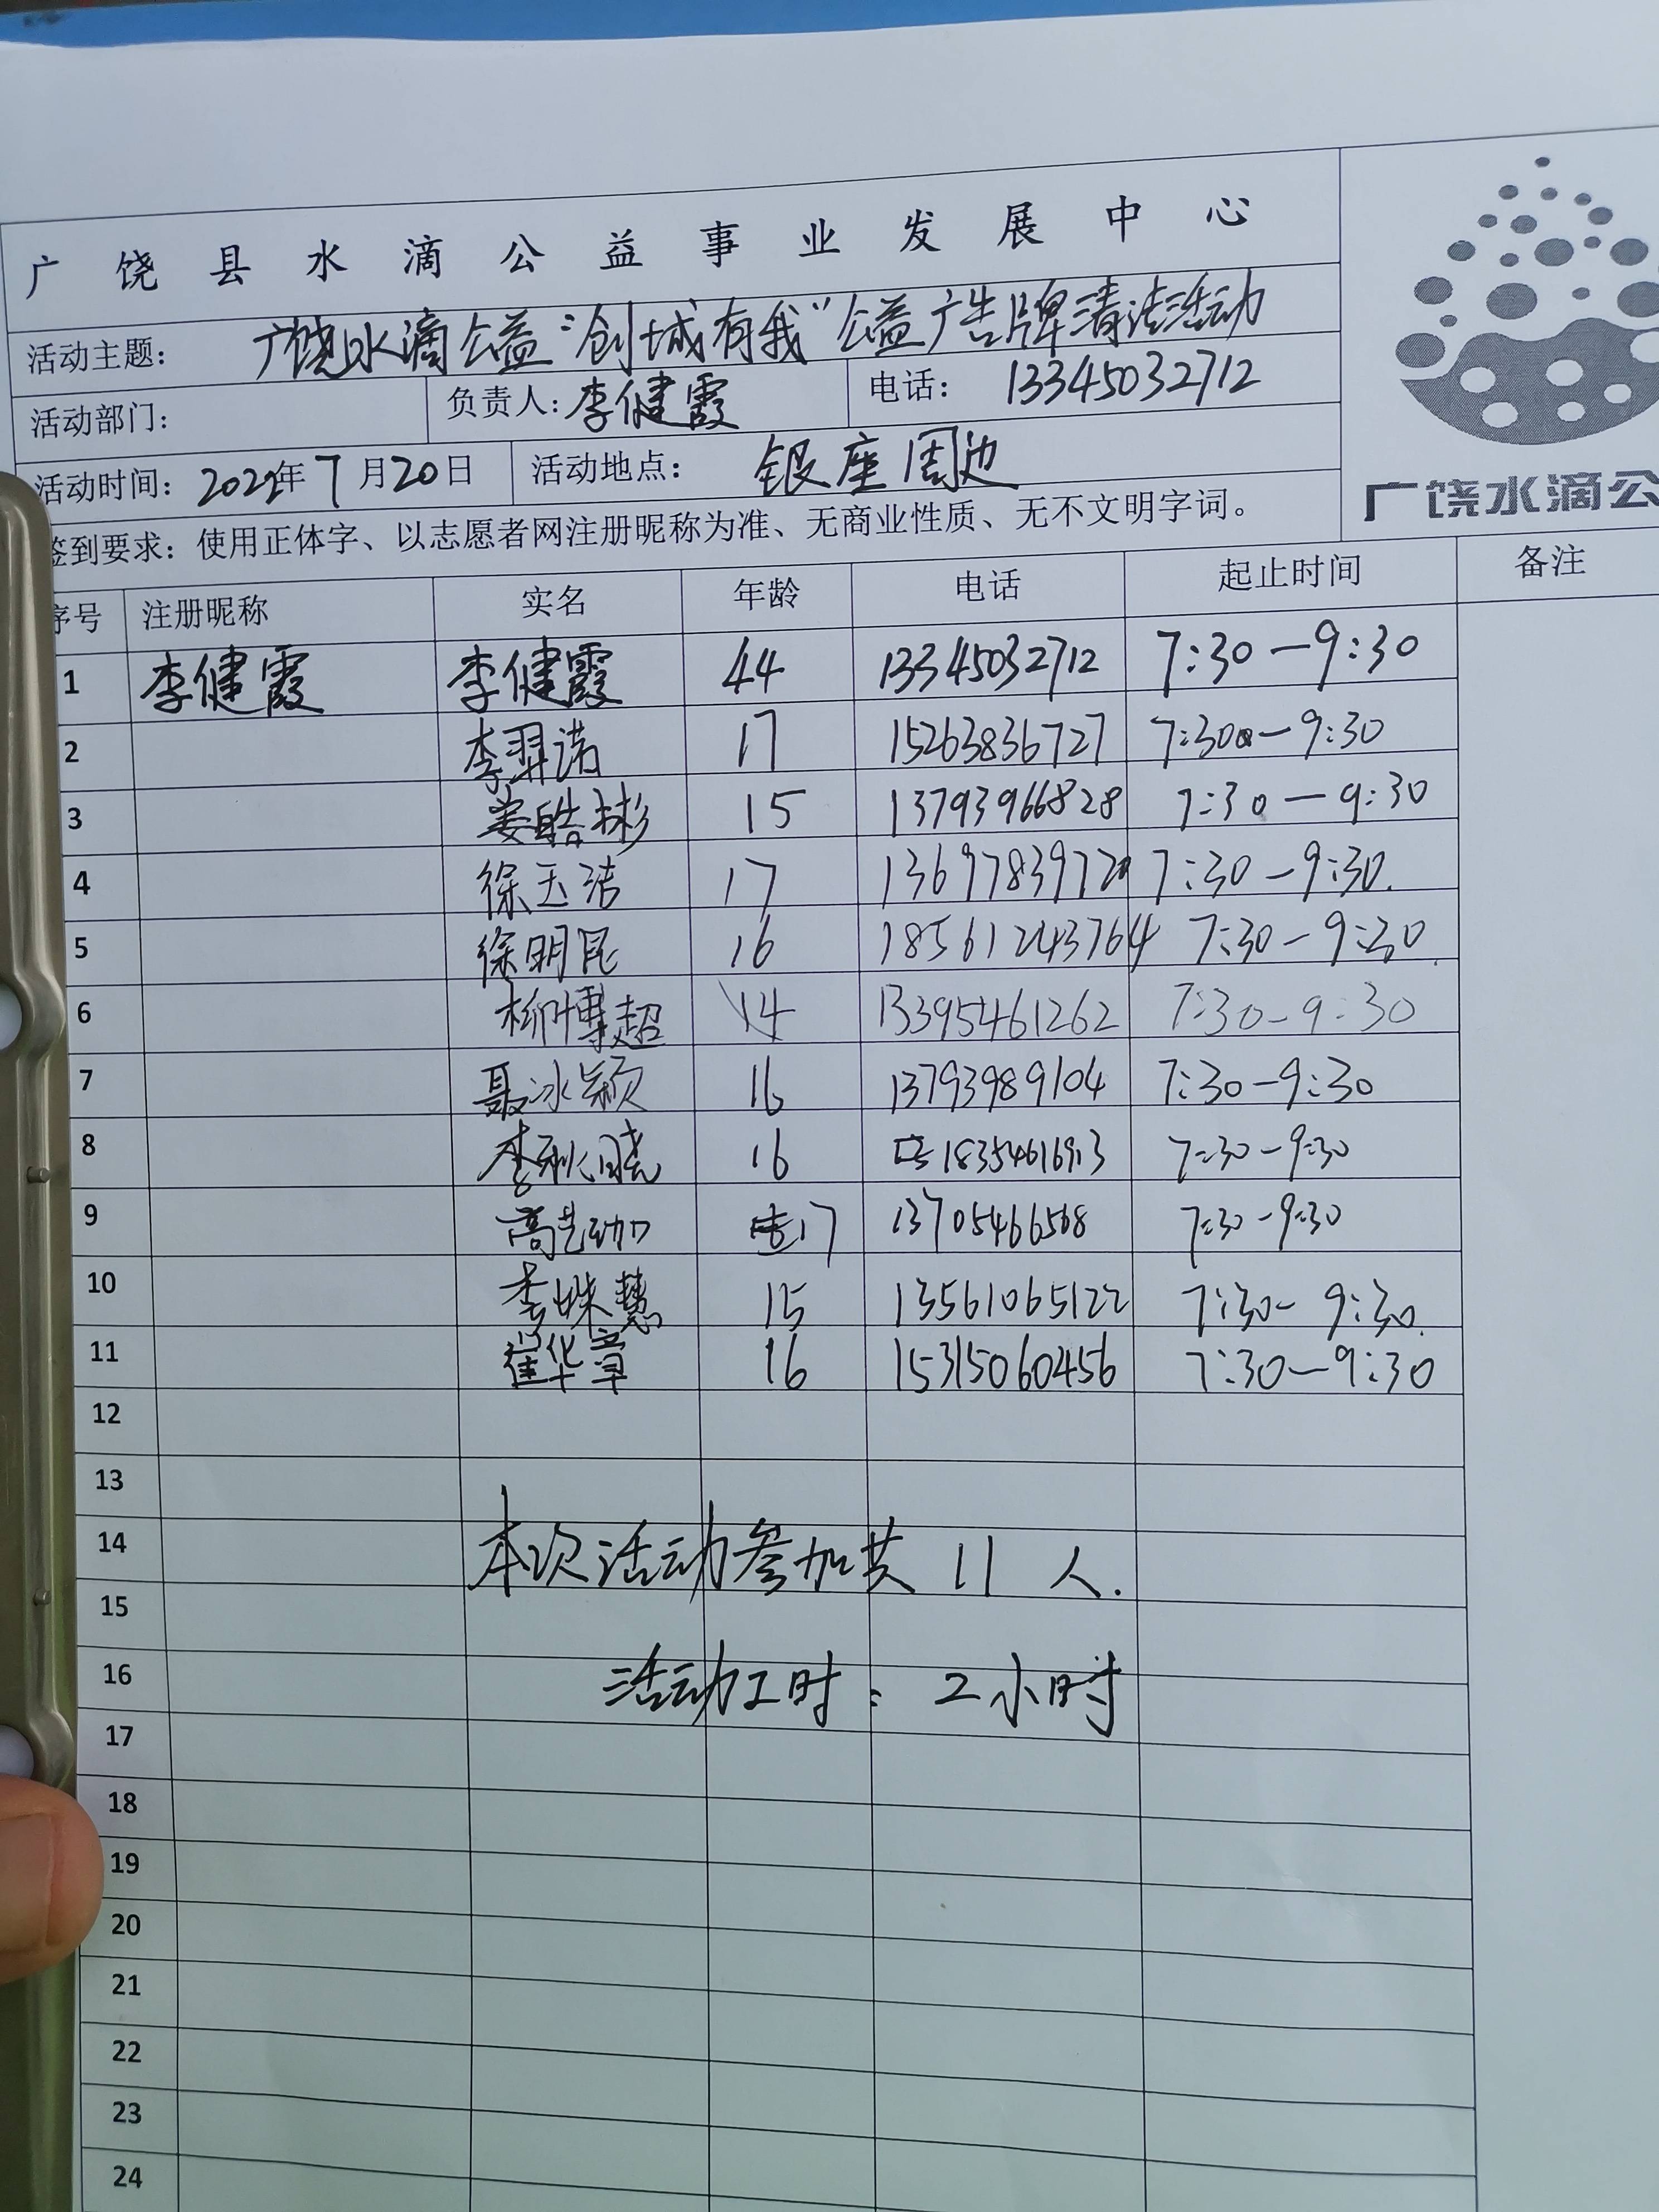 广饶县水滴公益事业发展中心
活动主题： 广饶水滴公益“创城有我”公益广告牌清洁活动
活动部门： 负责人：李健霞 电话： 13345032712
活动时间：2022年7月20日 活动地点： 银座周边
签到要求：使用正体字、以志愿者网注册昵称为准、无商业性质、无不文明字词。
广饶水滴公
序号 注册昵称 实名 年龄 电话 起止时间 备注
1 李健霞 李健霞 44 13345032712 7:30—9:30
2 李羿诺 17 15263836727 7:30—9:30
3 姜皓彬 15 13793966828 7:30—9:30
4 徐玉洁 17 7:30—9:30.
5 徐明昆 16 18561243764 7:30—9:30.
6 柳博超 14 13395461262 7:30-9:30
7 聂冰颖 16 13793989104 7:30-9:30
8 李秋晓 16 18354616913 7:30-9:30
9 高艺珈 17 13705466568 7:30-9:30
10 李姝慧 15 13561065122 7:30- 9:30.
11 崔华章 16 15315060456 7:30—9:30
12
13
14 本次活动参加共 11 人.
15
16 活动工时： 2小时
17
18
19
20
21
22
23
24